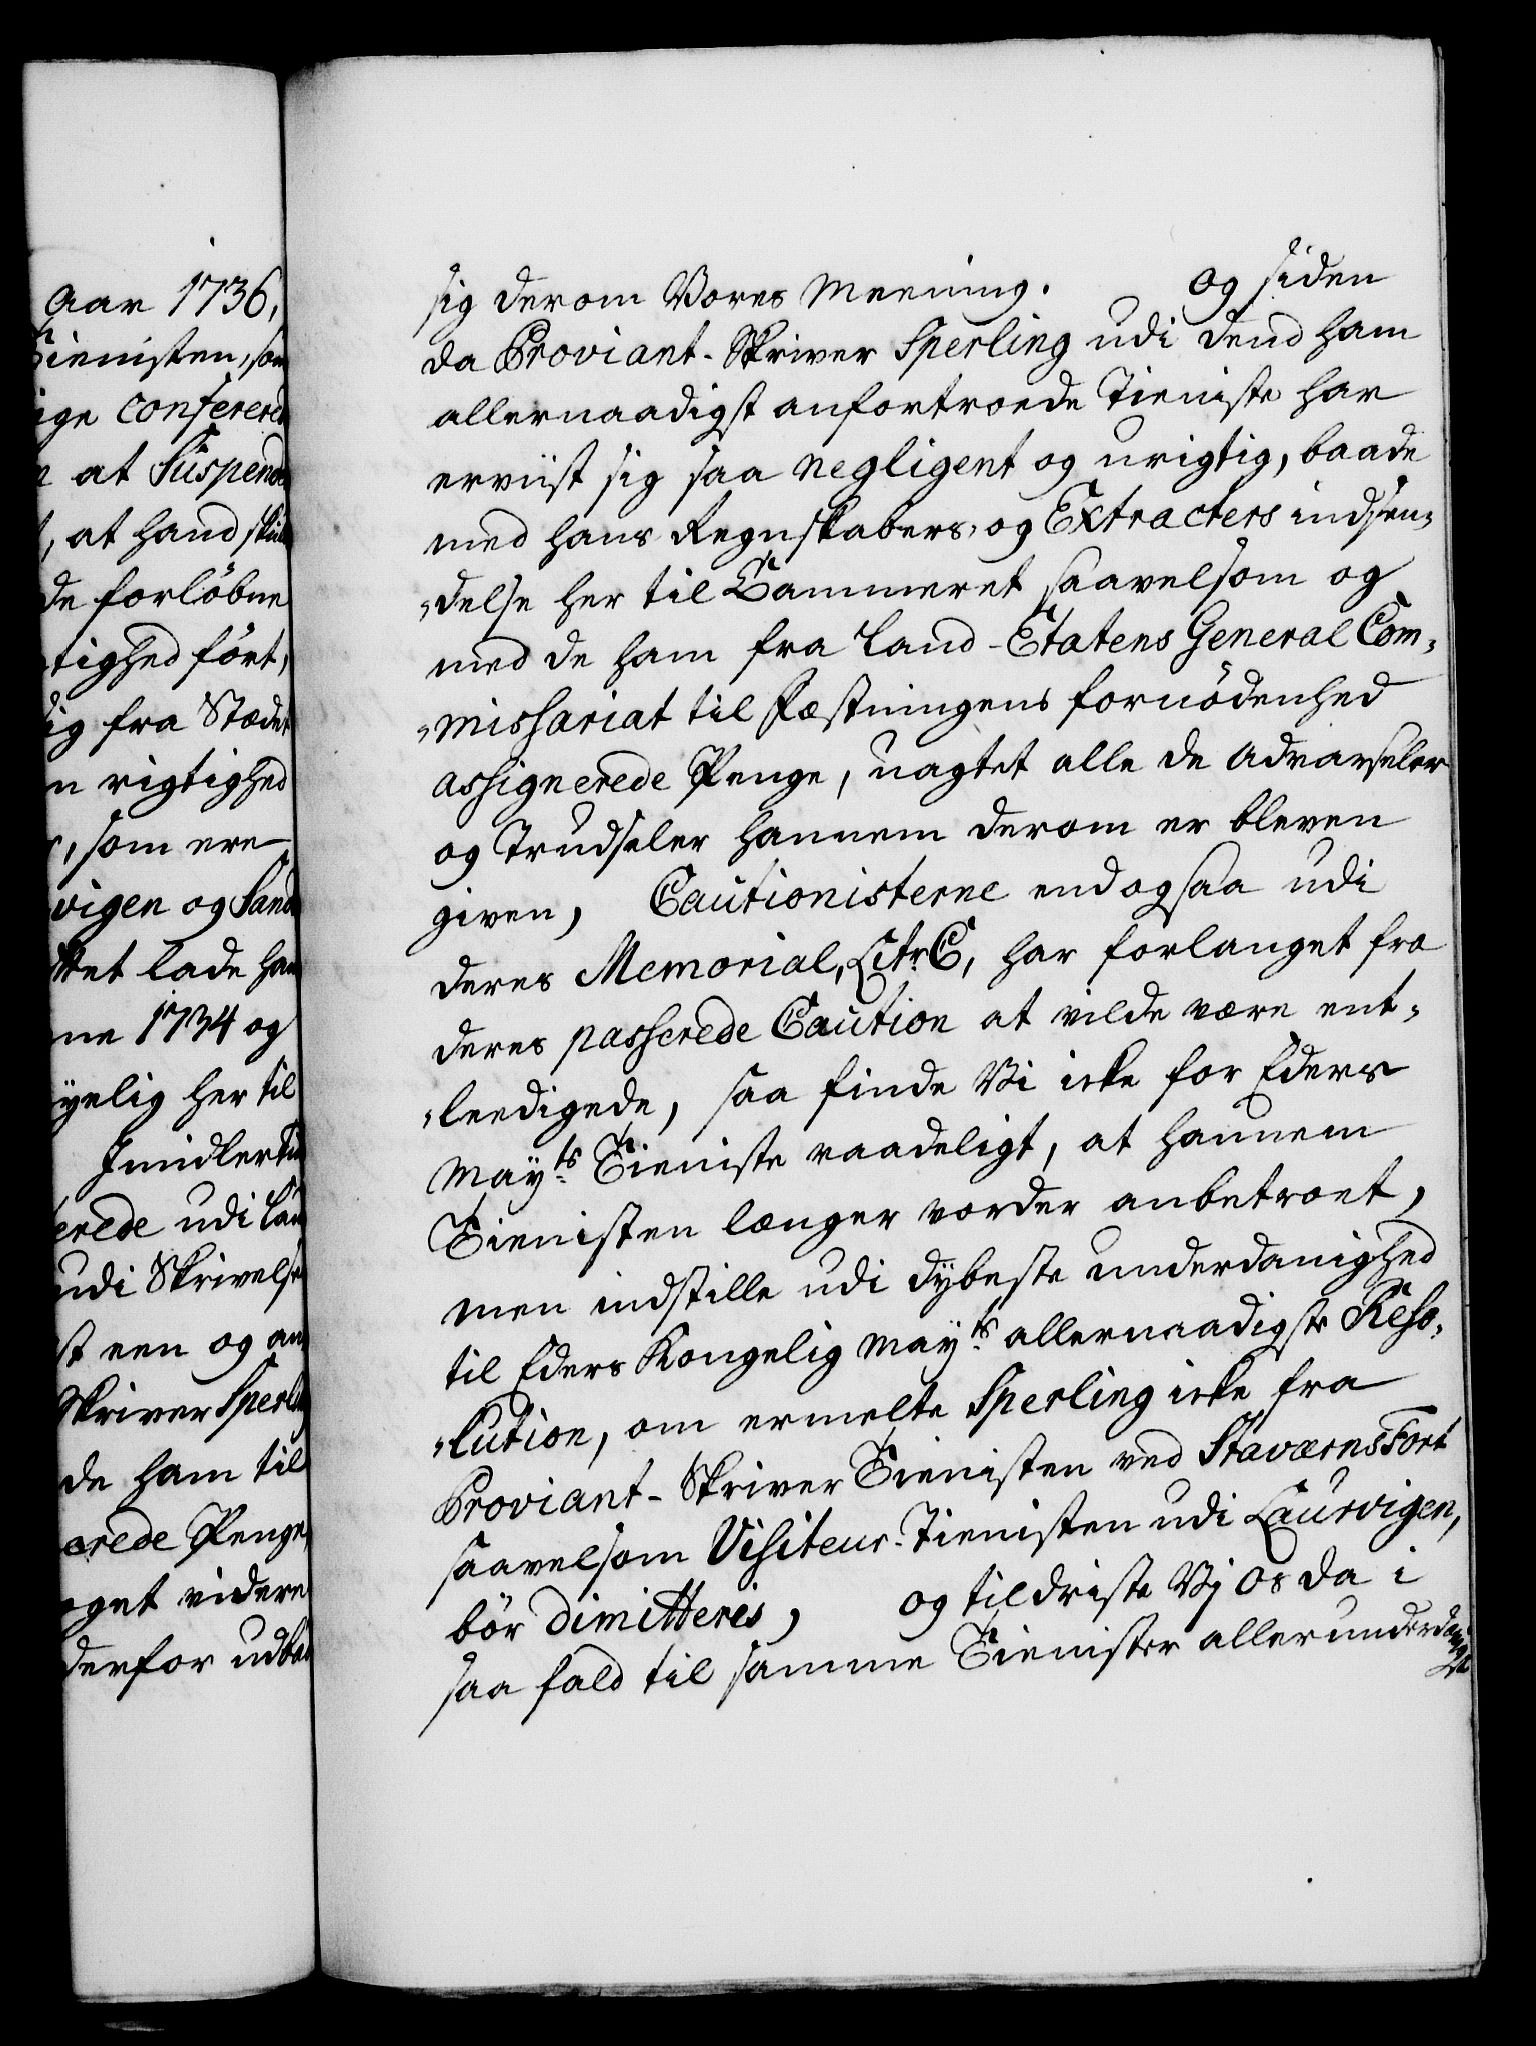 Aar 1736,
Tienisten, som
ige confererer
at Suspende
, at hand skul
de forløbne
tighed ført,
ig fra Stædet
n rigtighed
, som ere
vigen og Sand
tet lade ham
ne 1734 og
yelig her til
Imidlertid
erede udi Lau
udi Skrivelse
st een og an
Skriver Sperling
de ham til
erede Penge,
get videre
derfor udbe
sig derom Vores Meening. og siden
da Proviant-Skriver Sperling udi dend ham
allernaadigst anfortroede Tieniste har
erviist sig saa negligent og urigtig, baade
med hans Regnskabers, og Extracters indsen,,
,,delse her til Cammeret saavelsom og
med de ham fra Land-Etatens General Com,,
,,missariat til Fæstningens fornødenhed
assignerede Penge, uagtet alle de Advarseler
og Trudseler hannem derom er bleven
given, Cautionisterne endogsaa udi
deres Memorial, Litr. C, har forlanget fra
deres passerede Caution at vilde være ent,,
,,leedigede, saa finde Vi icke for Eders
Mayts Tieniste raadeligt, at hannem
Tienisten længer vorder anbetroet,
men indstille udi dybeste underdanighed
til Eders Kongelig Mayts allernaadigste Reso,,
,,lution, om ermelte Sperling icke fra
Proviant-Skriver Tienisten ved Staværns Fort
saavelsom Visiteur-Tienisten udi Laurvigen,
bör dimitteris, og tildriste Vj Os da i
saa fald til samme Tienister allerunderdanigst